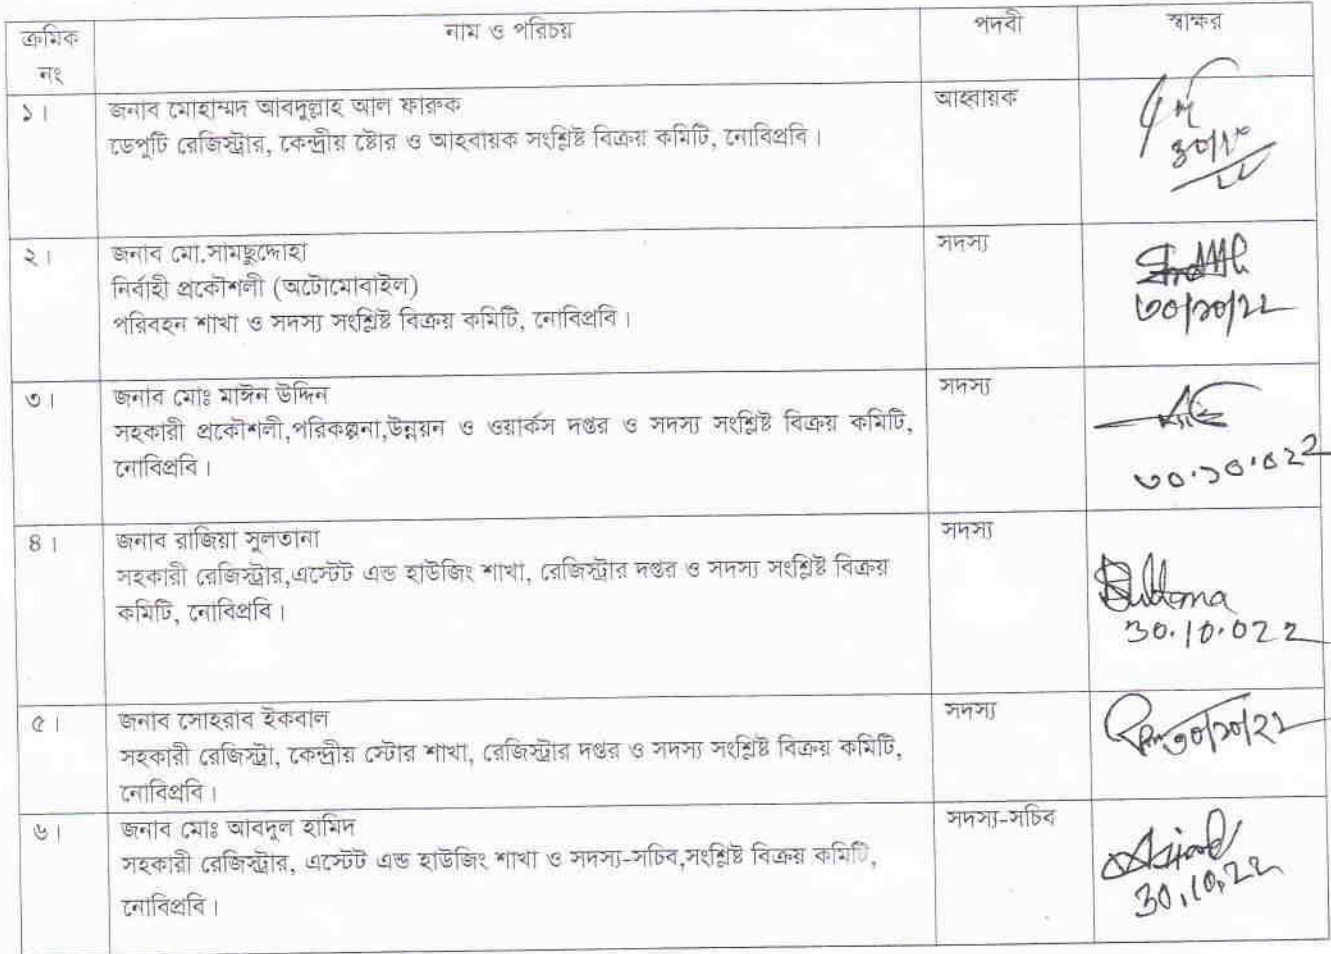 ক্রমিক নং	নাম ও পরিচয়	পদবী	স্বাক্ষর
১।	জনাব মোহাম্মদ আবদুল্লাহ আল ফারুক	আহবায়ক
ডেপুটি রেজিস্ট্রার, কেন্দ্রীয় ষ্টোর ও আহবায়ক সংশ্লিষ্ট বিক্রয় কমিটি, নোবিপ্রবি।
২।	জনাব মো.সামছুদ্দোহা	সদস্য
নির্বাহী প্রকৌশলী (অটোমোবাইল)
পরিবহন শাখা ও সদস্য সংশ্লিষ্ট বিক্রয় কমিটি, নোবিপ্রবি।
৩০/১০/২২
৩।	জনাব মোঃ মাঈন উদ্দিন	সদস্য
সহকারী প্রকৌশলী,পরিকল্পনা,উন্নয়ন ও ওয়ার্কস দপ্তর ও সদস্য সংশ্লিষ্ট বিক্রয় কমিটি,
নোবিপ্রবি।
৩০.১০.০২২
৪।	জনাব রাজিয়া সুলতানা	সদস্য
সহকারী রেজিস্ট্রার,এস্টেট এন্ড হাউজিং শাখা, রেজিস্ট্রার দপ্তর ও সদস্য সংশ্লিষ্ট বিক্রয়
কমিটি, নোবিপ্রবি।
Sultana
30.10.022
৫।	জনাব সোহরাব ইকবাল	সদস্য
সহকারী রেজিস্ট্রা, কেন্দ্রীয় স্টোর শাখা, রেজিস্ট্রার দপ্তর ও সদস্য সংশ্লিষ্ট বিক্রয় কমিটি,
নোবিপ্রবি।
৩০/১০/২২
৬।	জনাব মোঃ আবদুল হামিদ	সদস্য-সচিব
সহকারী রেজিস্ট্রার, এস্টেট এন্ড হাউজিং শাখা ও সদস্য-সচিব,সংশ্লিষ্ট বিক্রয় কমিটি,
নোবিপ্রবি।
30.10.22